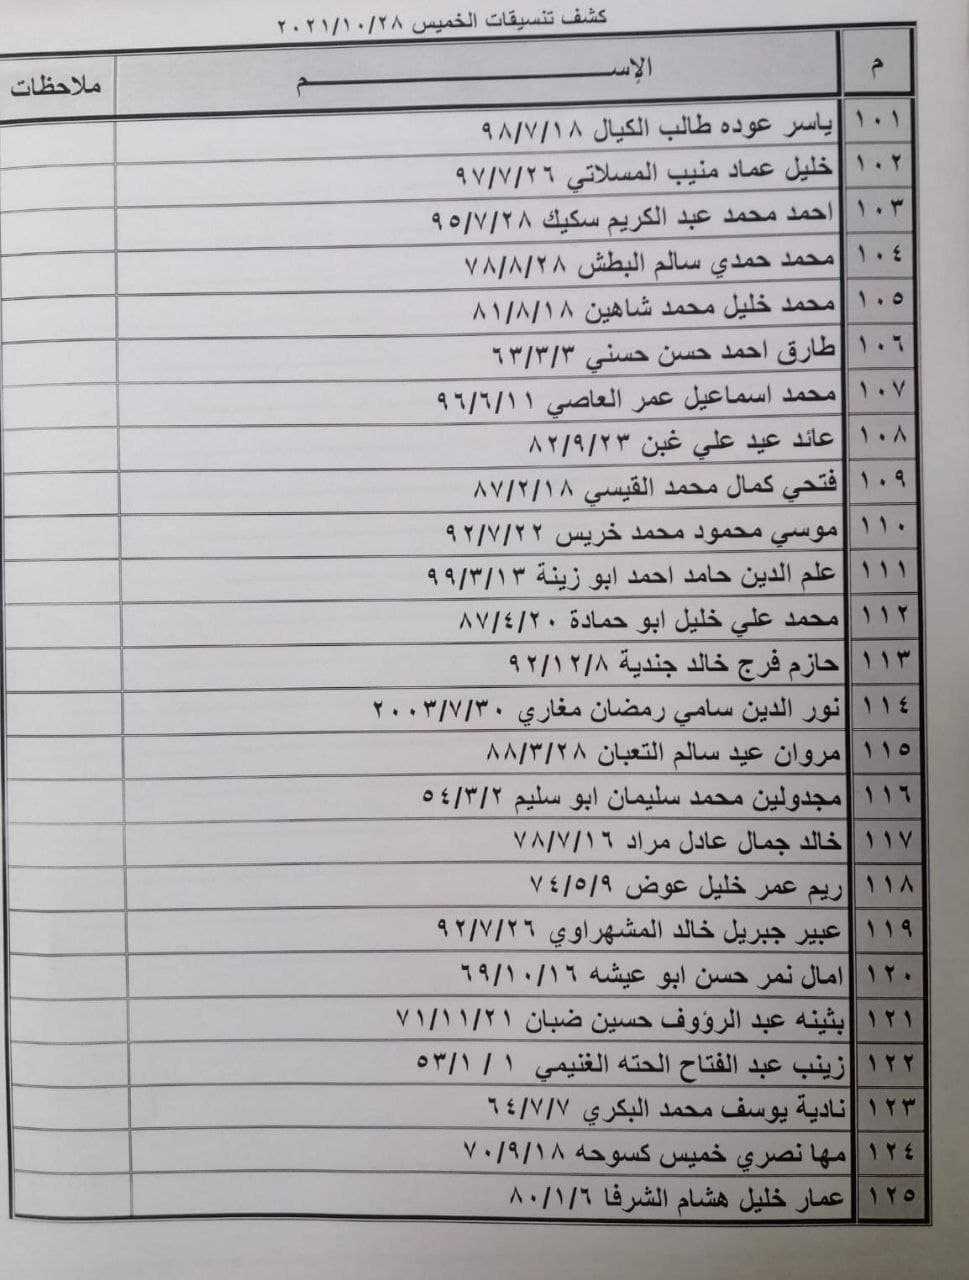 كشف تنسيقات الخميس ٢٠٢١/١٠/٢٨
م الإســـــــــــم ملاحظات
١٠١ ياسر عوده طالب الكيال ٩٨/٧/١٨
١٠٢ خليل عماد منيب المسلاتي ٩٧/٧/٢٦
١٠٣ احمد محمد عبد الكريم سكيك ٩٥/٧/٢٨
١٠٤ محمد حمدي سالم البطش ٧٨/٨/٢٨
١٠٥ محمد خليل محمد شاهين ٨١/٨/١٨
١٠٦ طارق احمد حسن حسني ٦٣/٣/٣
١٠٧ محمد اسماعيل عمر العاصي ٩٦/٦/١١
١٠٨ عائد عيد علي غبن ٨٢/٩/٢٣
١٠٩ فتحي كمال محمد القيسي ٨٧/٢/١٨
١١٠ موسي محمود محمد خريس ٩٢/٧/٢٢
١١١ علم الدين حامد احمد ابو زينة ٩٩/٣/١٣
١١٢ محمد علي خليل ابو حمادة ٨٧/٤/٢٠
١١٣ حازم فرج خالد جندية ٩٢/١٢/٨
١١٤ نور الدين سامي رمضان مغاري ٢٠٠٣/٧/٣٠
١١٥ مروان عيد سالم التعبان ٨٨/٣/٢٨
١١٦ مجدولين محمد سليمان ابو سليم ٥٤/٣/٢
١١٧ خالد جمال عادل مراد ٧٨/٧/١٦
١١٨ ريم عمر خليل عوض ٧٤/٥/٩
١١٩ عبير جبريل خالد المشهراوي ٩٢/٧/٢٦
١٢٠ امال نمر حسن ابو عيشه ٦٩/١٠/١٦
١٢١ بثينه عبد الرؤوف حسين ضبان ٧١/١١/٢١
١٢٢ زينب عبد الفتاح الحته الغنيمي ٥٣/١/ ١
١٢٣ نادية يوسف محمد البكري ٦٤/٧/٧
١٢٤ مها نصري خميس كسوحه ٧٠/٩/١٨
١٢٥ عمار خليل هشام الشرفا ٨٠/١/٦